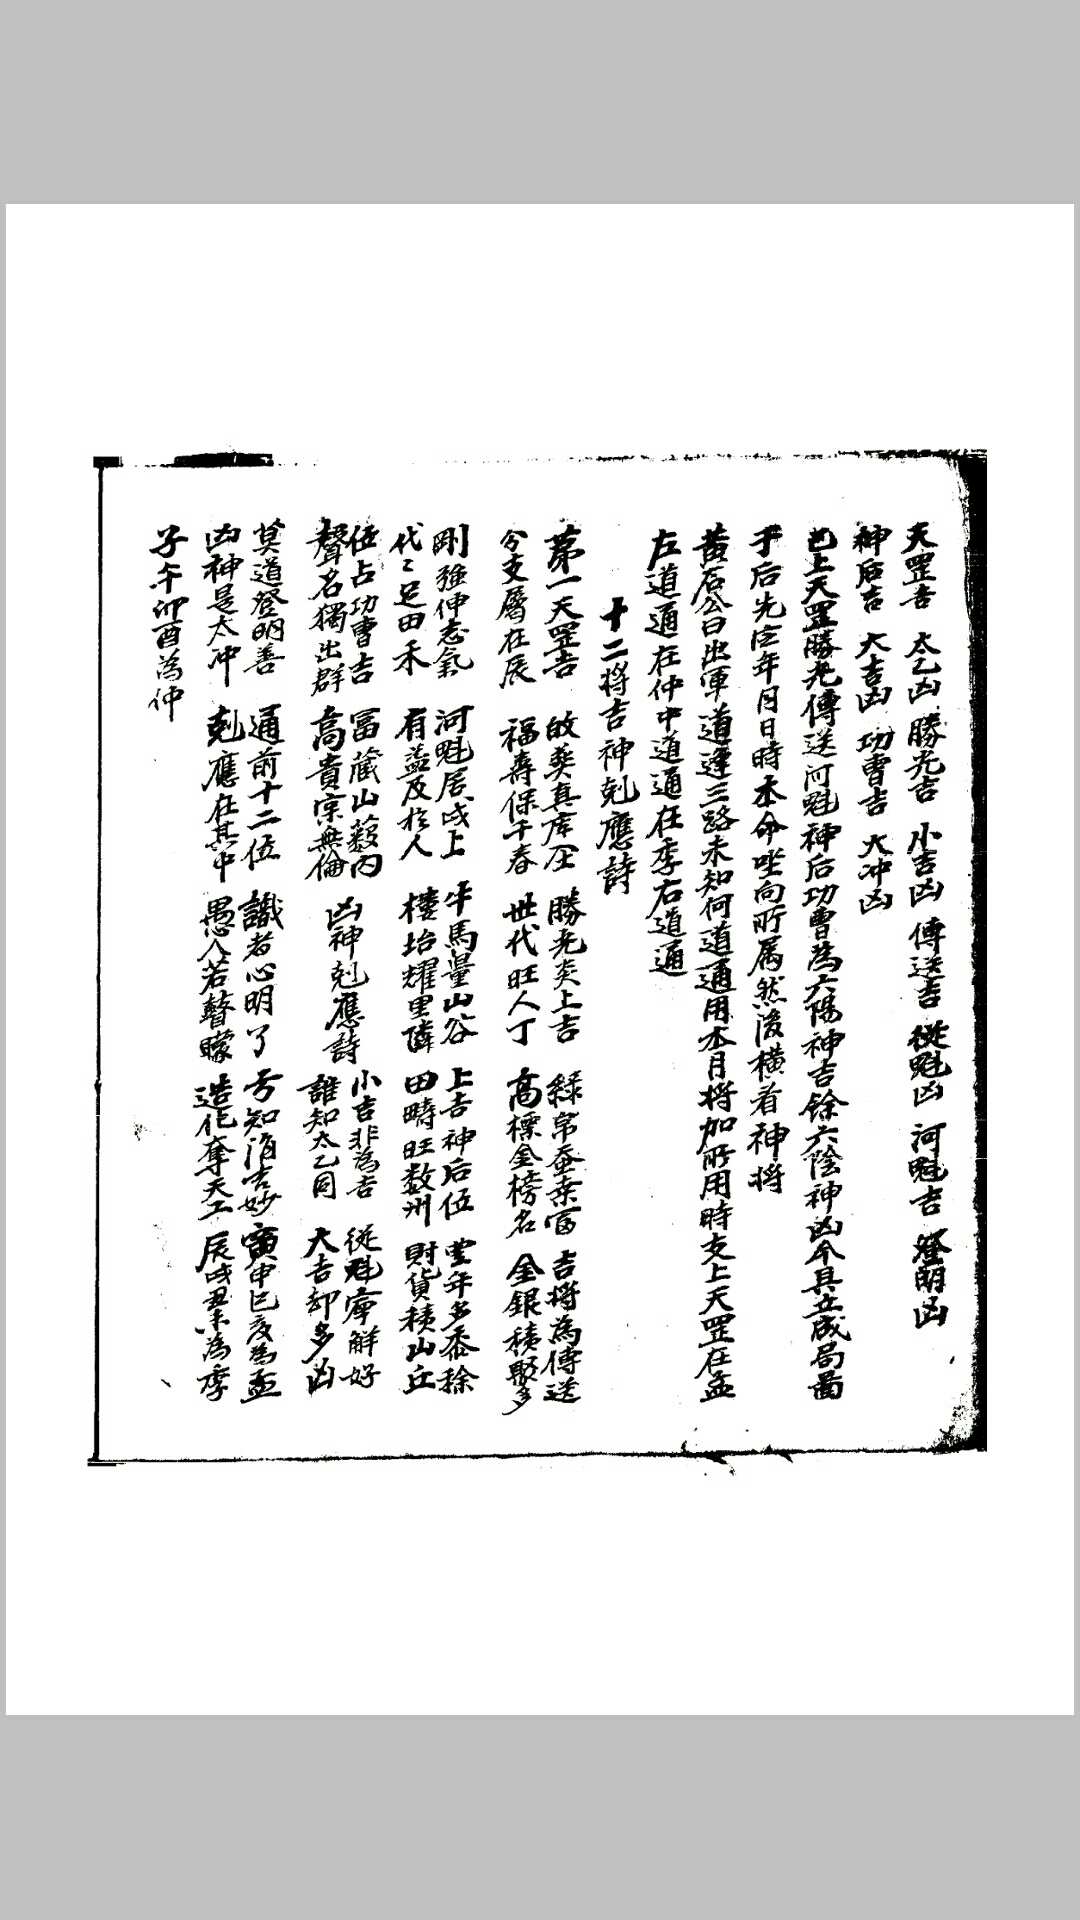 天罡吉 太乙凶 勝光吉 小吉凶 傳送吉 從魁凶 河魁吉 登明凶
神后吉 大吉凶 功曹吉 大冲凶
已上天罡勝光傳送河魁神后功曹為六陽神吉餘六陰神凶今具立成局啚
于后先定年月日時本命坐向所属然後横看神将
黄石公曰出軍道逢三路未知何道通用本月将加所用時支上天罡在孟
左道通在仲中道通在季右道通
十二将吉神剋應詩
苐一天罡吉 啟葵真庫 勝光炎上吉 緑帛蚕桒富 吉将為傳送
分支屬在辰 福壽保千春 世代旺人丁 高標金榜名 金銀積聚多
剛強伸志氣 河魁居戍上 牛馬量山谷 上吉神后位 豊年多黍稌
代〻足田禾 有益及於人 樓抬耀里隣 田疇旺数州 財貨積山丘
位占功曹吉 冨藏山薮内 凶神剋應詩 小吉非為吉 從魁牢解好
聲名獨出群 高貴宗無倫 誰知太乙同 大吉却多凶
莫道登明善 通前十二位 識者心明了 知消吉妙 寅申巳亥為孟
凶神是太冲 剋應在其中 愚人若瞽矇 造化奪天工 辰戍丑未為季
子午卯酉為仲